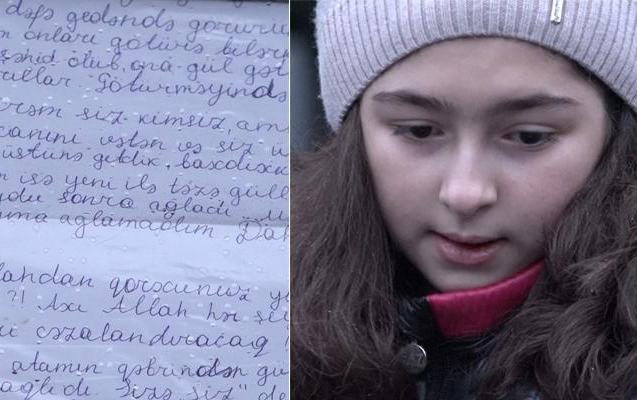 dəfə gedəndə görürü
onları götürə bilər
şəhid olub, ona gül gət
güllər götürməyində
siz kimsiz, am
canını vətən və siz u
üstünə getdik, baxdıx
isə yeni ilə təzə gülle
sonra ağladı
ağlamadım. Dah
qorxunuz y
?! Axı Allah hər şe
cəzalandıracaq!
atamın qəbrindən gü
ağladı. Sizə siz" de